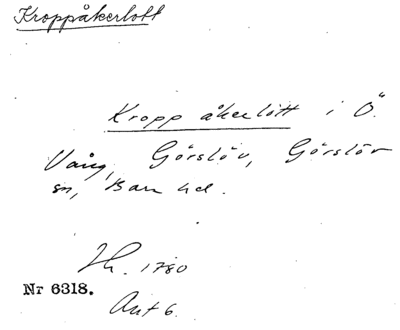 Kroppåkerlott
Kropp åkerlott i Ö.
Vång, Görslöv, Görslöv
sn, Bara hd.
Lh. 1780
Nr 6318.
Akt 6.